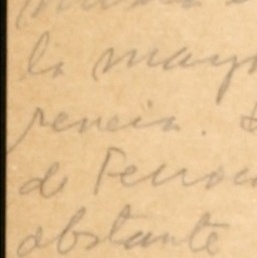 la mayo
rencia.
de Ferroca
obstante